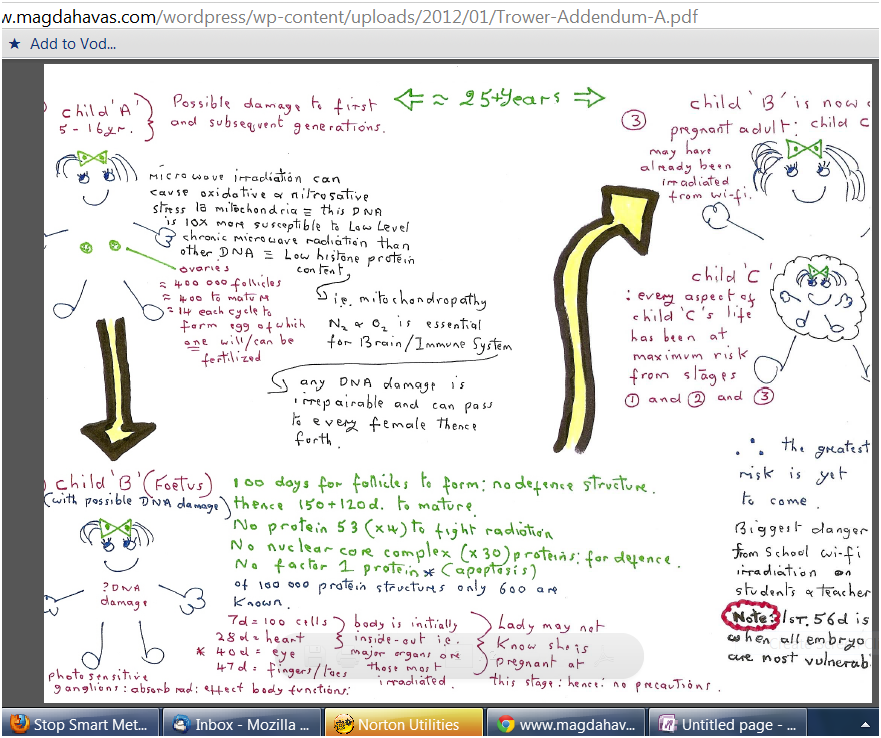 w.magdahavas.com/wordpress/wp-content/uploads/2012/01/Trower-Addendum-A.pdf
Add to Vod...
child 'A'
5 - 16yr.
Possible damage to first
and subsequent generations.
≈ 25+Years
microwave irradiation can
cause oxidative & nitrosative
stress to mitochondria ≡ this DNA
is 10x more susceptible to Low Level
chronic microwave radiation than
other DNA ≡ Low histone protein
content,
ovaries
≈ 400 000 follicles
≈ 400 to mature
≈ 14 each cycle to
form egg of which
one will/can be
fertilized
i.e. mitochondropathy
N₂ & O₂ is essential
for Brain/Immune System
any DNA damage is
irrepairable and can pass
to every female thence
forth.
③
child 'B' is now
pregnant adult: child C
may have
already been
irradiated
from wi-fi.
child 'C'
: every aspect of
child 'C's life
has been at
maximum risk
from stages
① and ② and ③
∴ the greatest
risk is yet
to come.
Biggest danger
from School wi-fi
irradiation on
students & teacher
Note: 1ST. 56d is
when all embryo
are most vulnerab
child 'B' (Foetus)
(with possible DNA damage)
? DNA
damage
100 days for follicles to form: no defence structure.
thence 150+120d. to mature.
No protein 53 (x4) to fight radiation
No nuclear core complex (x30) proteins: for defence.
No factor 1 protein * (apoptosis)
of 100 000 protein structures only 600 are
known.
7d = 100 cells
28d = heart
* 40d = eye
47d = fingers/toes
body is initially
inside-out i.e.
major organs are
those most
irradiated.
Lady may not
know she is
pregnant at
this stage: hence: no precautions.
photosensitive
ganglions: absorb rad: effect body functions.
Stop Smart Met...
Inbox - Mozilla ...
Norton Utilities
www.magdahav...
Untitled page - ...